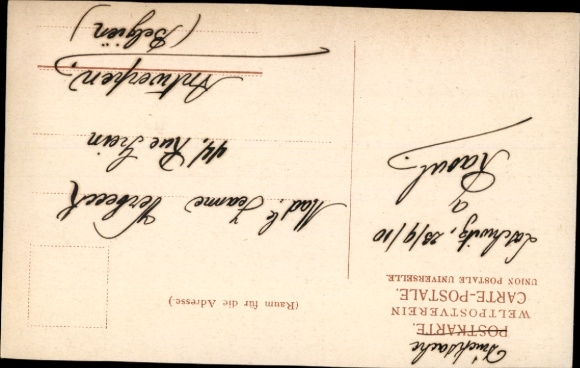 Drucksache
POSTKARTE.
WELTPOSTVEREIN
CARTE-POSTALE.
UNION POSTALE UNIVERSELLE.
Loschwitz, 23/9/10
Raoul.
(Raum für die Adresse)
Mad.lle Jeanne Verbeeck
44, Rue Grein
Antwerpen,
(Belgien)